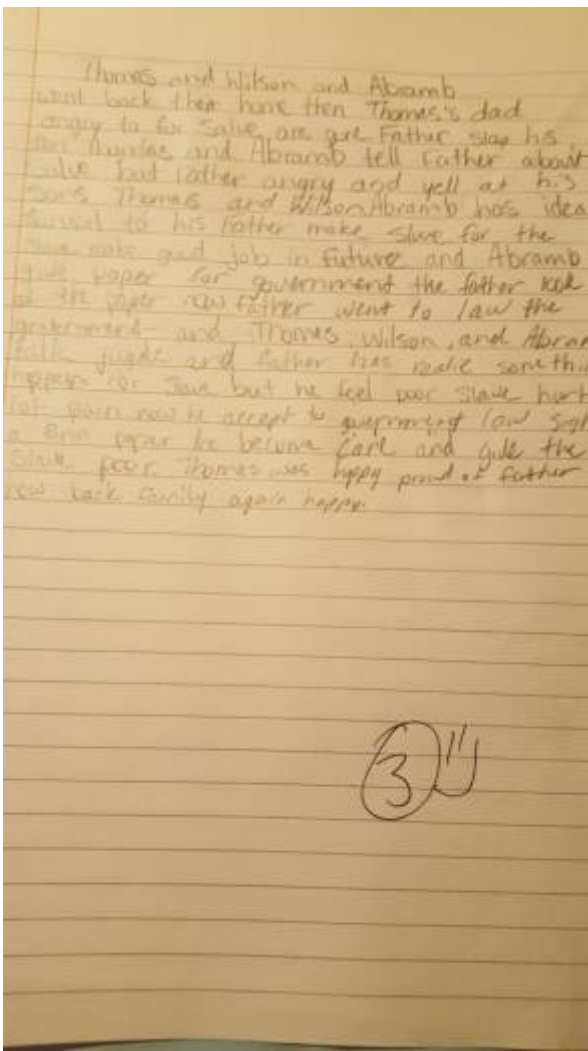 Thomas and Wilson and Abramb
went back then home then Thomas's dad
angry to for Salve are give Father slap his
Thomas and Abramb tell Father about
salve but father angry and yell at his
sons Thomas and Wilson Abramb has idea
to his father make slave for the
make good job in future and Abramb
paper for government the father look
at the paper now father went to law the
government and Thomas, Wilson, and Abram
talk jugde and father has somethin
happen for slave but he feel poor slave hurt
lot pain now he accept to government law sign
a paper he become and give the
slave poor. Thomas was happy proud of father
now back family again happy.
3